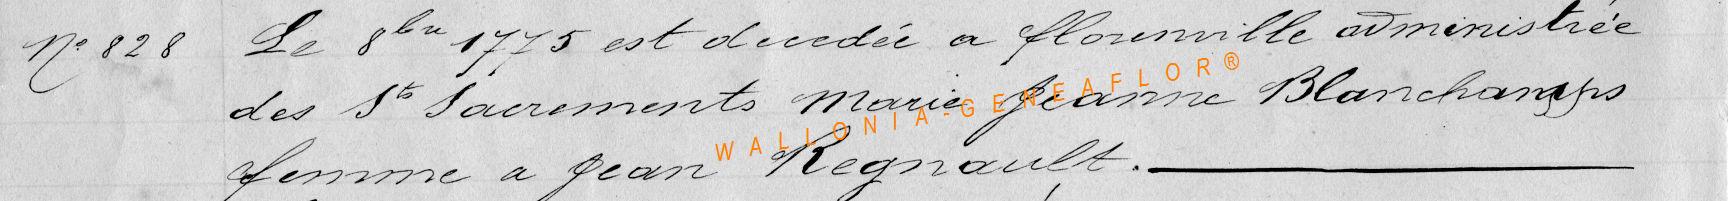 Nº 828 Le 8bre 1775 est decedée a florenville administrée
des Sts Sacrements Marie Jeanne Blanchamps
femme a Jean Regnault.
WALLONIA-GENEAFLOR®